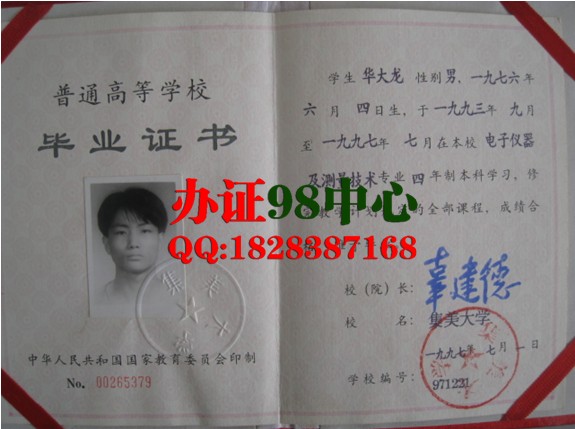 普通高等学校
毕业证书
中华人民共和国国家教育委员会印制
No. 00265379
学生 华大龙 性别男，一九七六年
六月 四日生，于一九九三年 九月
至一九九七年 七月在本校 电子仪器
及测量技术专业 四年制本科学习，修
的全部课程，成绩合
办证98中心
QQ:1828387168
校（院）长：辜建德
校 名：集美大学
一九九七年 七月 一日
学校编号：971221